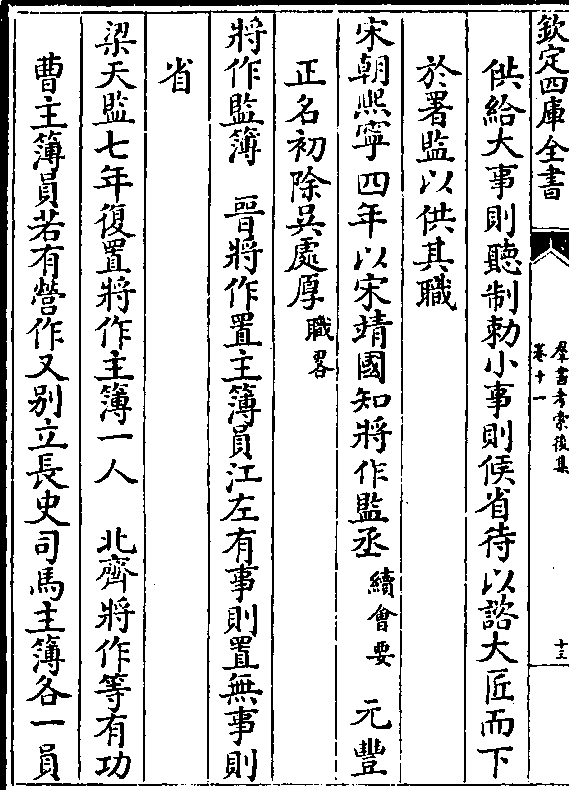 欽定四庫全書
羣書考索後集
卷十一
十三
供給大事則聽制勅小事則候省待以諮大匠而下
於署監以供其職
宋朝熙寧四年以宋靖國知將作監丞 續會要 元豐
正名初除吳處厚 職畧
將作監簿 晉將作置主簿員江左有事則置無事則
省
梁天監七年復置將作主簿一人 北齊將作等有功
曹主簿員若有營作又别立長史司馬主簿各一員